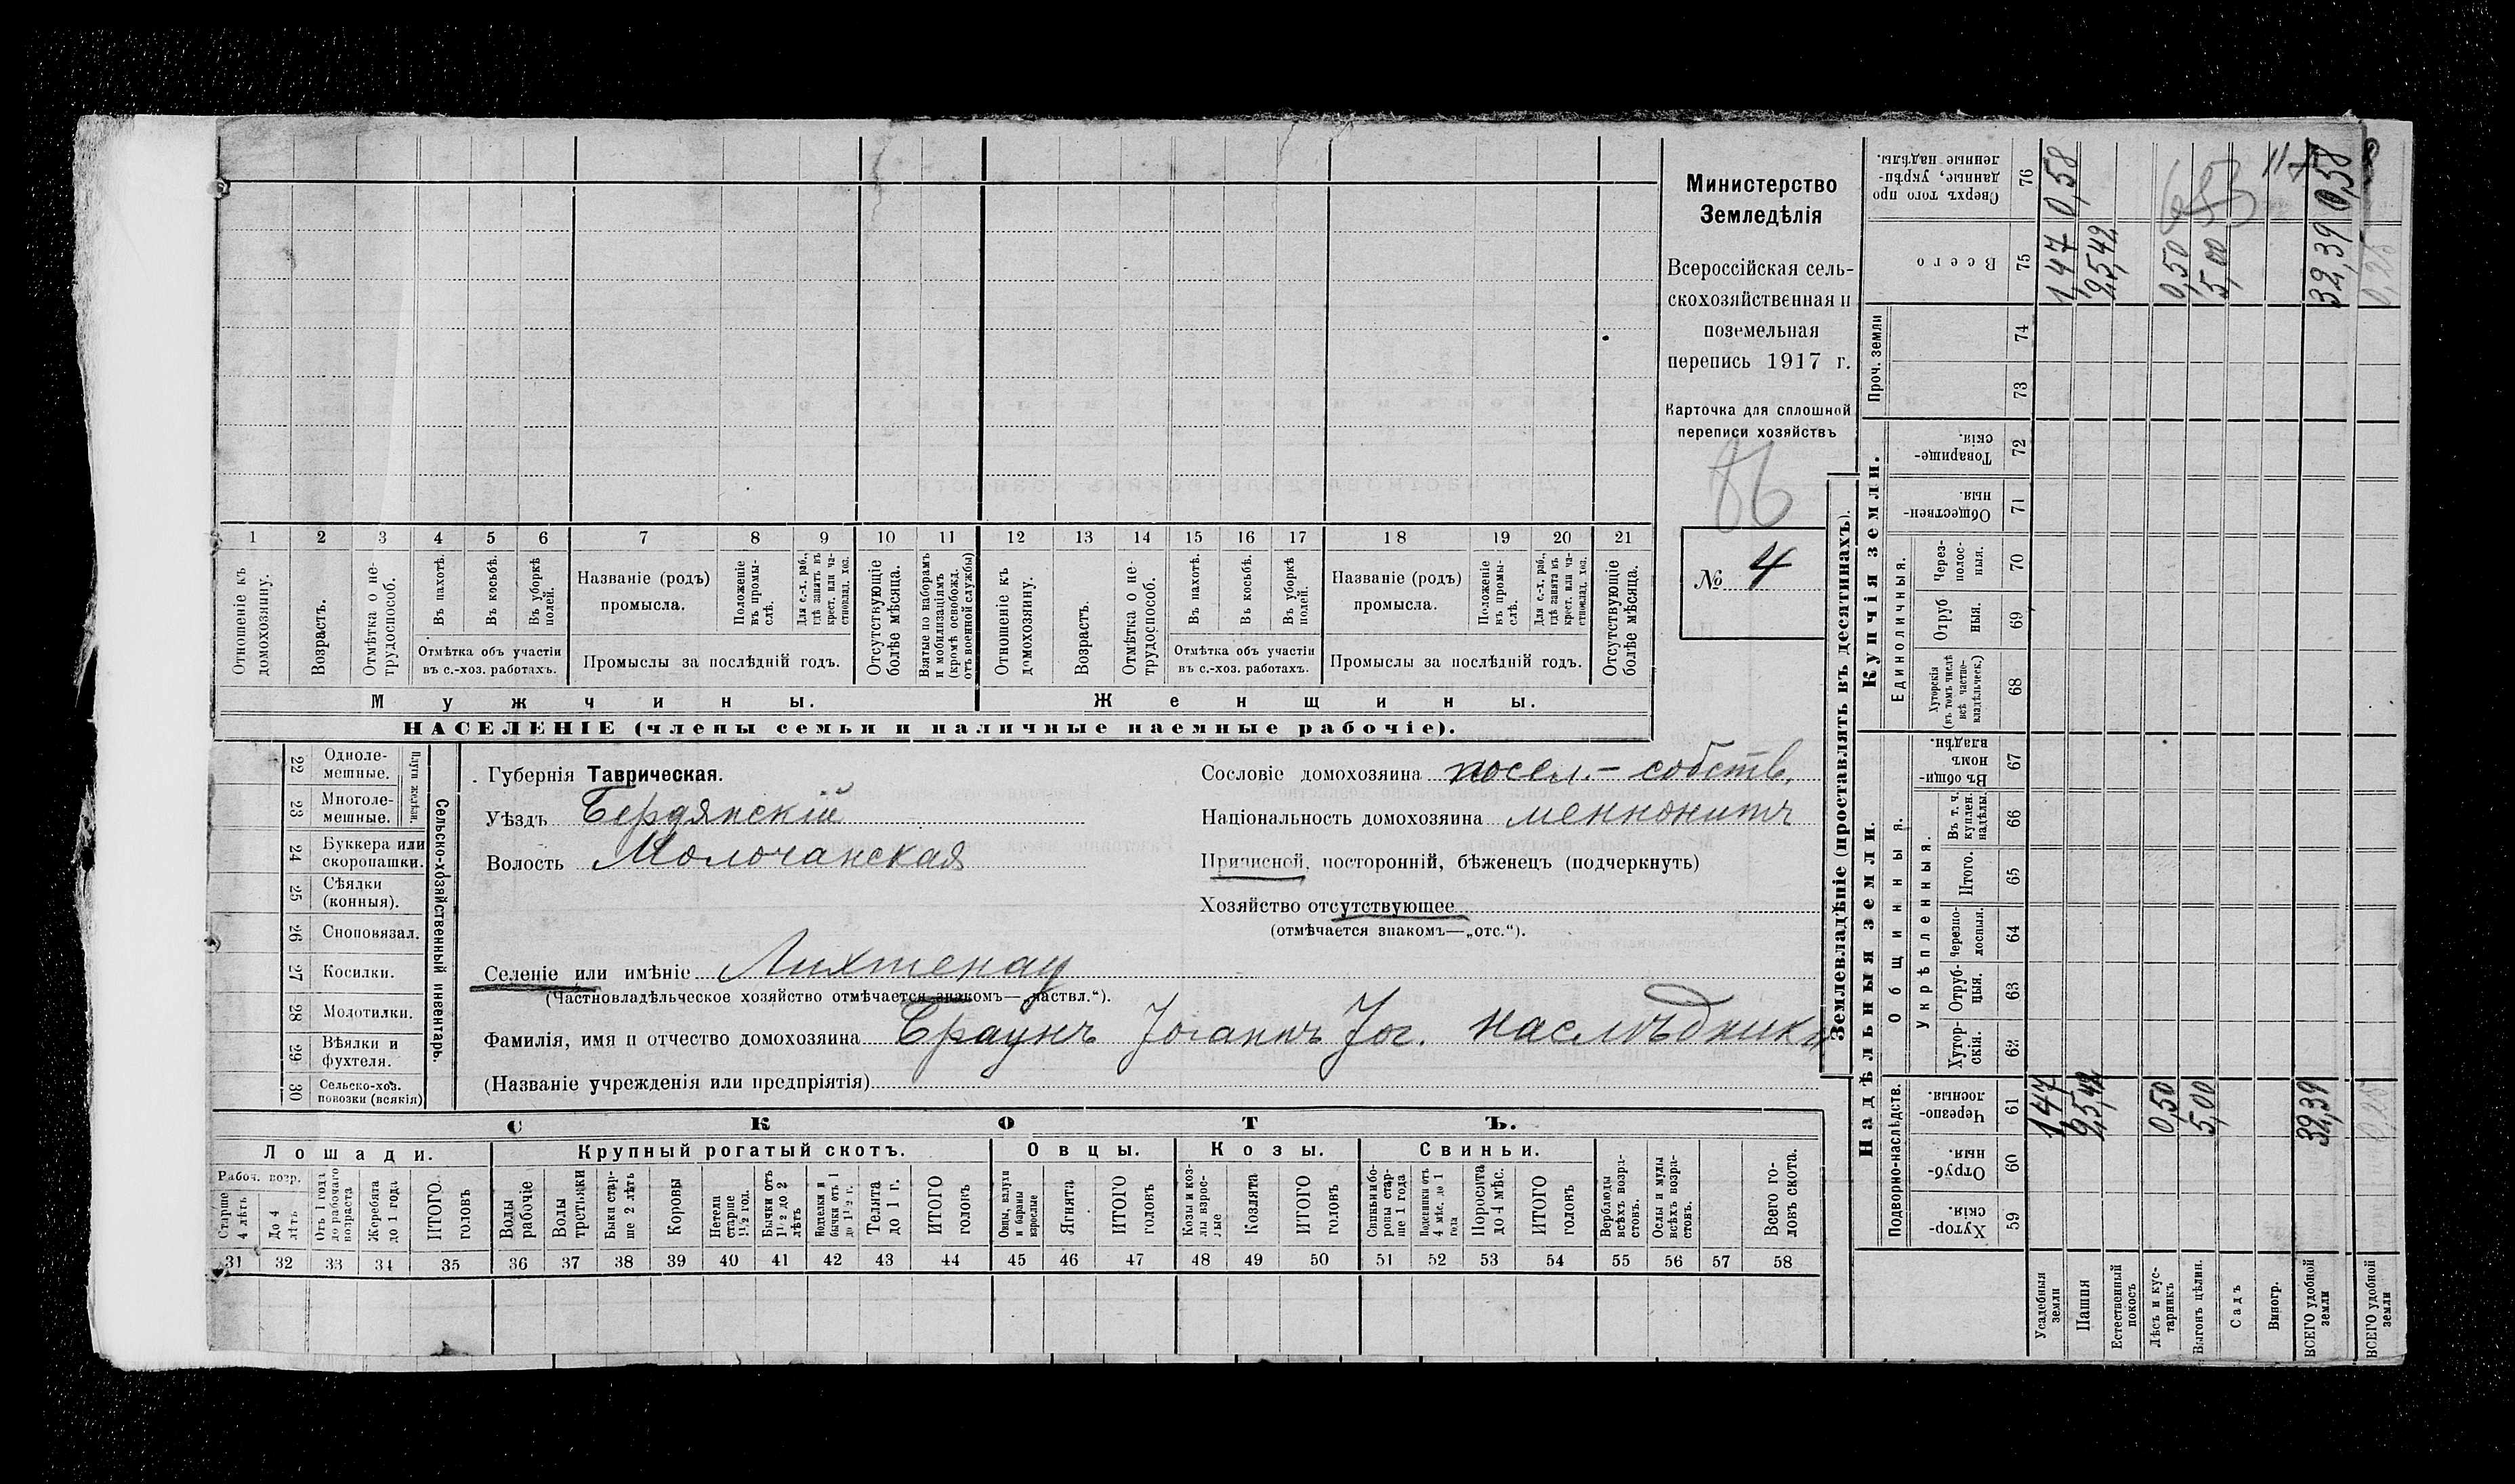 Министерство
Земледѣлія
Всероссійская сель-
скохозяйственная и
поземельная
перепись 1917 г.
Карточка для сплошной
переписи хозяйствъ
86
№ 4
1 2 3 4 5 6 7 8 9 10 11 12 13 14 15 16 17 18 19 20 21
Отношеніе къ домохозяину.
Возрастъ.
Отмѣтка о не-трудоспособ.
Въ пахотѣ.
Въ косьбѣ.
Въ уборкѣ полей.
Отмѣтка объ участіи
въ с.-хоз. работахъ.
Названіе (родъ)
промысла.
Положеніе въ промы-слѣ.
Для с.-х. раб., гдѣ занятъ въ крест. или ча-стновлад. хоз.
Промыслы за послѣдній годъ.
Отсутствующіе болѣе мѣсяца.
Взятые по наборамъ и мобилизаціямъ (кромѣ освобожд. отъ военной службы)
Отношеніе къ домохозяину.
Возрастъ.
Отмѣтка о не-трудоспособ.
Въ пахотѣ.
Въ косьбѣ.
Въ уборкѣ полей.
Отмѣтка объ участіи
въ с.-хоз. работахъ.
Названіе (родъ)
промысла.
Положеніе въ промы-слѣ.
Для с.-х. раб., гдѣ занята въ крест. или ча-стновлад. хоз.
Промыслы за послѣдній годъ.
Отсутствующіе болѣе мѣсяца.
Мужчины. Женщины.
НАСЕЛЕНІЕ (члены семьи и наличные наемные рабочіе).
Сельско-хозяйственный инвентарь.
Плуги желѣзн.
22 Одноле-мешные.
23 Многоле-мешные.
24 Буккера или скоропашки.
25 Сѣялки (конныя).
26 Сноповязал.
27 Косилки.
28 Молотилки.
29 Вѣялки и фухтеля.
30 Сельско-хоз. повозки (всякія)
Губернія Таврическая.
Уѣздъ Бердянскій
Волость Молочанская
Сословіе домохозяина посел.- собств.
Національность домохозяина меннонитъ
Приписной, посторонній, бѣженецъ (подчеркнуть)
Хозяйство отсутствующее
(отмѣчается знакомъ—„отс.“).
Селеніе или имѣніе Лихтенау
(Частновладѣльческое хозяйство отмѣчается знакомъ—„частвл.“).
Фамилія, имя и отчество домохозяина Браунъ Іоганнъ Іог. наслѣдники
(Названіе учрежденія или предпріятія)
СКОТЪ.
Лошади. Крупный рогатый скотъ. Овцы. Козы. Свиньи.
Рабоч. возр.
Старше 4 лѣтъ
До 4 лѣтъ.
Отъ 1 года до рабочаго возраста
Жеребята до 1 года
ИТОГО головъ
Волы рабочіе
Волы третьяки
Быки стар-ше 2 лѣтъ
Коровы
Нетели старше 1½ год.
Бычки отъ 1½ до 2 лѣтъ
Подтелки и бычки отъ 1 до 1½ г.
Телята до 1 г.
ИТОГО головъ
Овцы, валухи и бараны взрослые
Ягнята
ИТОГО головъ
Козы и коз-лы взрос-лые
Козлята
ИТОГО головъ
Свиньи и бо-ровы стар-ше 1 года
Подсвинки отъ 4 мѣс. до 1 года
Поросята до 4 мѣс.
ИТОГО головъ
Верблюды всѣхъ возра-стовъ.
Ослы и мулы всѣхъ возра-стовъ.
Всего го-ловъ скота.
31 32 33 34 35 36 37 38 39 40 41 42 43 44 45 46 47 48 49 50 51 52 53 54 55 56 57 58
Землевладѣніе (проставлять въ десятинахъ).
Надѣльныя земли.
Купчія земли.
Проч. земли
Подворно-наслѣдств.
Общинныя.
Укрѣпленныя.
Единоличныя.
Хутор-скія. 59
Отруб-ныя. 60
Черезпо-лосныя. 61
Хутор-скія. 62
Отруб-ныя. 63
Черезпо-лосныя. 64
Итого. 65
Въ т. ч. куплен. надѣлы. 66
Въ общин-номъ владѣн. 67
Хуторскія (въ томъ числѣ всѣ частно-владѣльческ.) 68
Отруб ныя. 69
Через-полос-ныя. 70
Обществен-ныя. 71
Товарище-скія. 72
73
74
Всего 75
Сверхъ того про данные, укрѣп-ленные надѣлы. 76
Усадебныя земли 1,47 1,47 0,58
Пашня 25,42 25,42
Естественный покосъ
Лѣсъ и кус-тарникъ 0,50 0,50
Выгонъ цѣлин. 5,00 5,00
Садъ
Виногр.
ВСЕГО удобной земли 32,39 32,39 0,58
ВСЕГО удобной земли